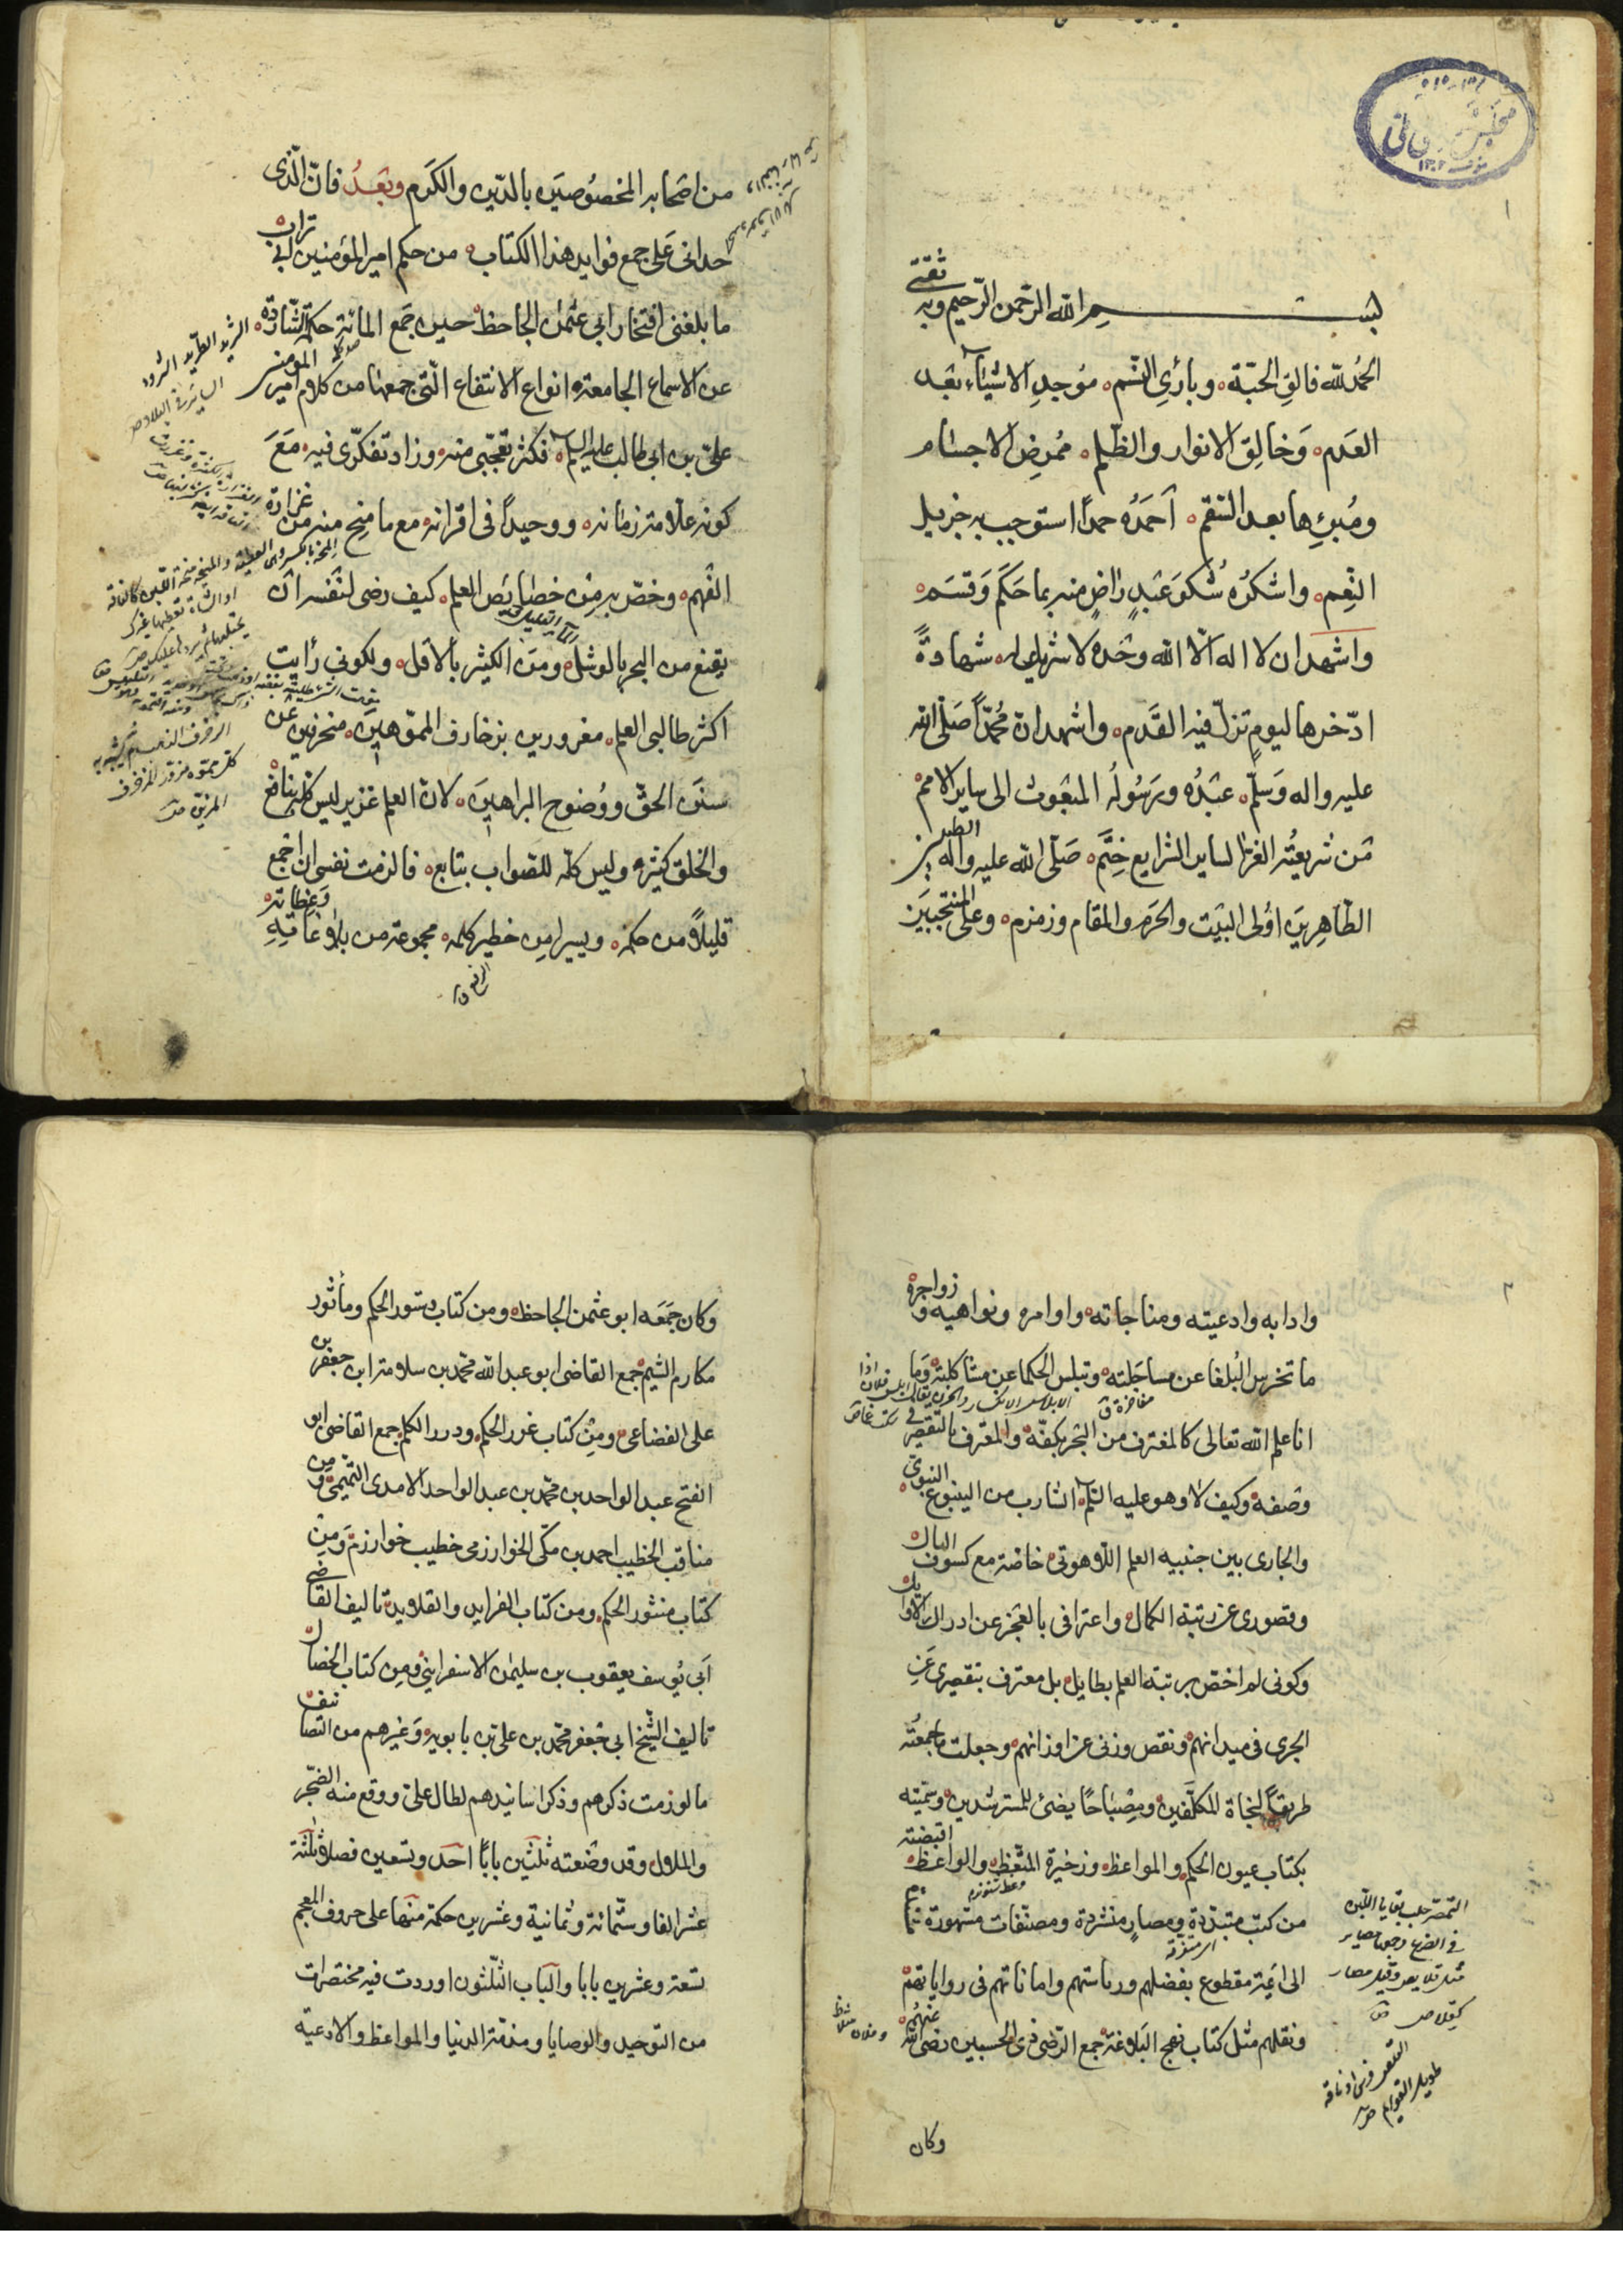 بسم الله الرحمن الرحيم وبه ثقتي
الحمد لله فالق الحبّة وبارئ النسم موجد الاشياء بعد
العدم وخالق الانوار والظلم ممرض الاجسام
ومبرئها بعد السقم احمده حمدا استوجب به جزيل
النعم واشكره شكر عبد راض منه بما حكم وقسم
واشهد ان لا اله الا الله وحده لا شريك له شهادة
ادّخرها ليوم تزلّ فيه القدم واشهد ان محمدا صلى الله
عليه واله وسلم عبده ورسوله المبعوث الى ساير الامم
من شريعته الغرا لساير الشرايع ختم صلى الله عليه واله الطيبين
الطاهرين اولى البيت والحرم والمقام وزمزم وعلى المنتجبين
من اصحابه المخصوصين بالدين والكرم وبعد فان الذى
حدانى على جمع فوايد هذا الكتاب من حكم امير المؤمنين ابى تراب
ما بلغنى افتخار ابى عثمان الجاحظ حين جمع المائة حكمة الشاردة
عن الاسماع الجامعة انواع الانتفاع التى جمعها من كلام امير المومنين
على بن ابى طالب عليه السلم فكثر تعجّبى منه وزاد تفكّرى فيه مع
كونه علامة زمانه ووحيدا فى اقرانه مع ما منح منه من غزارة
الفهم وخصّ به من خصايص العلم كيف رضى لنفسه ان
يقنع من البحر بالوشل ومن الكثير بالاقل ولكونى رأيت
اكثر طالبى العلم مغرورين بزخارف المموّهين منحرفين عن
سنن الحق ووضوح البراهين لان العلم غزير ليس كله بنافع
والخلق كثير وليس كلّه للصواب بتابع فالزمت نفسى ان اجمع
قليلا من حكمه ويسيرا من خطير كلمه مجموعة من بلاغاته وعظاته
وادابه وادعيته ومناجاته واوامره ونواهيه وزواجره
ما تخرس البلغا عن مساجلته وتبلس الحكما عن مشاكلته وما
انا علم الله تعالى كالمغترف من البحر بكفّه والمعترف بالتقصير فى
وصفه وكيف لا وهو عليه السلم الشارب من الينبوع النبوى
والجارى بين جنبيه العلم اللاهوتى خاصة مع كسوف البال
وقصورى عن رتبة الكمال واعترافى بالعجز عن ادراك الاوايل
وكونى لم اختص برتبة العلم بطايل بل معترف بتقصيرى عن
الجرى فى ميدانهم ونقص وزنى عن اوزانهم وجعلت ما جمعته
طريقا لنجاة المكلفين ومصباحا يضئ للمسترشدين وسميته
بكتاب عيون الحكم والمواعظ وذخيرة المتعظ والواعظ اقتضبته
من كتب متبدّدة ومصار متشردة ومصنّفات مشهورة تنما
الى ائمة مقطوع بفضلهم ورياستهم واماناتهم فى رواياتهم
ونقلهم مثل كتاب نهج البلاغة جمع الرّضى ذى الحسبين رضى الله عنهم
وكان
وكان جمعه ابو عثمن الجاحظ ومن كتاب دستور الحكم ومأثور
مكارم الشيم جمع القاضى ابو عبد الله محمد بن سلامة ابن جعفر بن
على القضاعى ومن كتاب غرر الحكم ودرر الكلم جمع القاضى ابو
الفتح عبد الواحد بن محمد بن عبد الواحد الامدى التميمى ومن
مناقب الخطيب احمد بن مكى الخوارزمى خطيب خوارزم ومن
كتاب منثور الحكم ومن كتاب الفرايد والقلايد تاليف القاضى
ابى يوسف يعقوب بن سليمن الاسفراينى ومن كتاب الخصال
تاليف الشيخ ابى جعفر محمد بن على بن بابويه وغيرهم من التصانيف
ما لو رمت ذكرهم وذكر اسانيدهم لطال علىّ ووقع منه الضجر
والملال وقد وضعته ثلثين بابا احد وتسعين فصلا وثلثة
عشر الفا وستّمائة وثمانية وعشرين حكمة منها على حروف المعجم
تسعة وعشرين بابا والباب الثلثون اوردت فيه مختصرات
من التوحيد والوصايا ومذمة الدنيا والمواعظ والادعية